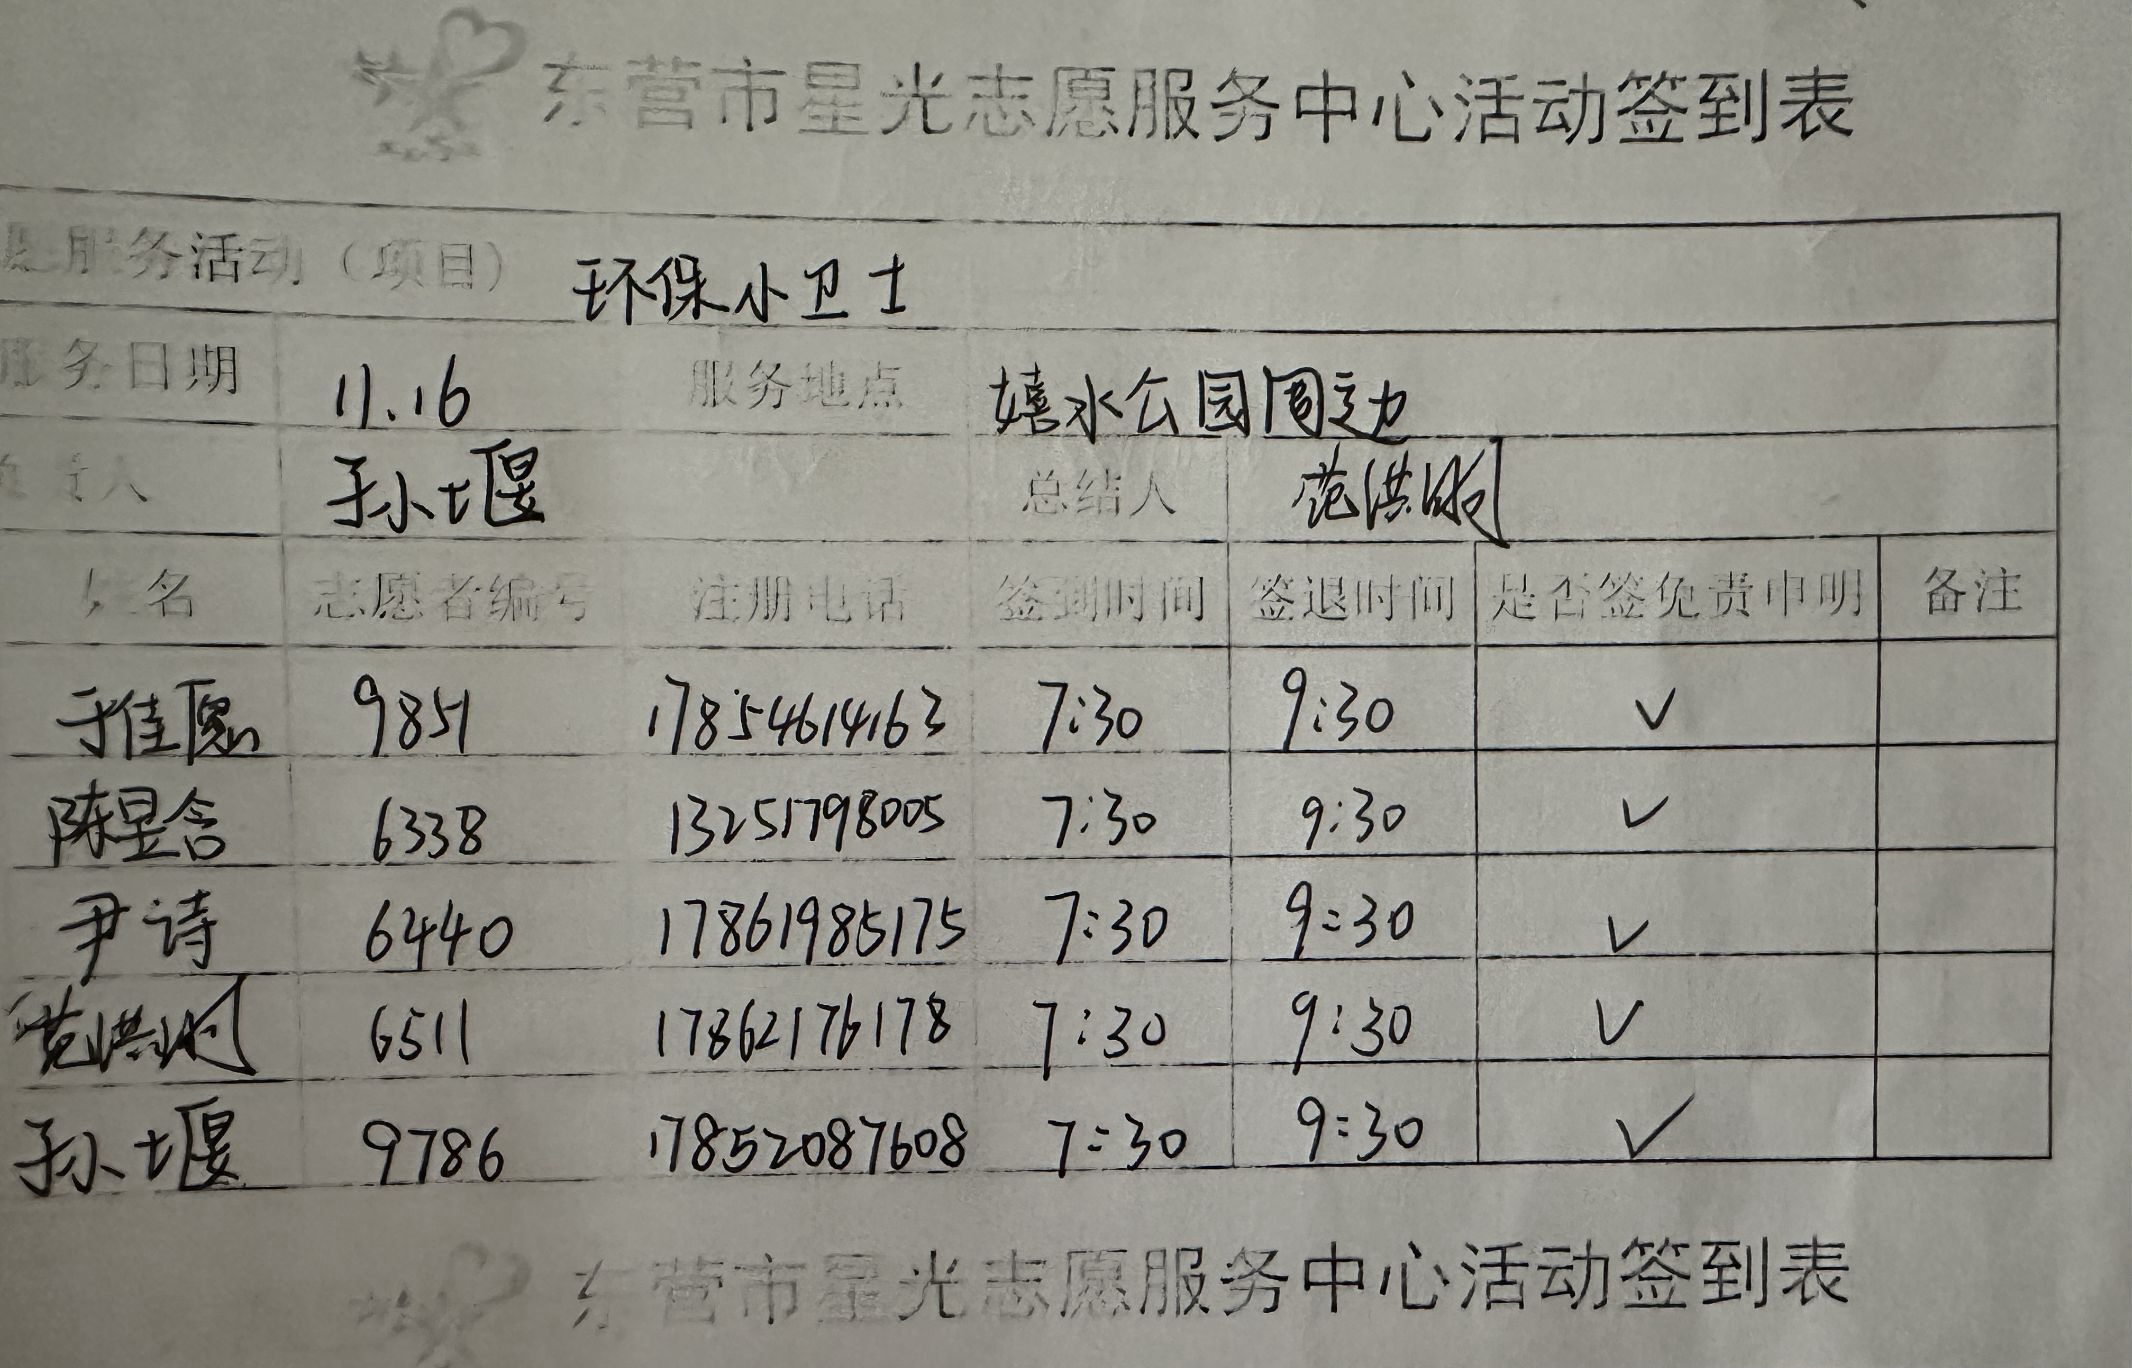 东营市星光志愿服务中心活动签到表
愿服务活动（项目） 环保小卫士
服务日期 11.16 服务地点 嬉水公园周边
负责人 孙堰 总结人 范洪刚
姓名 志愿者编号 注册电话 签到时间 签退时间 是否签免责申明 备注
于佳愿 9851 17854614163 7:30 9:30 ✓
陈昱含 6338 13251798005 7:30 9:30 ✓
尹诗 6440 17861985175 7:30 9:30 ✓
范洪刚 6511 17862176178 7:30 9:30 ✓
孙堰 9786 17852087608 7:30 9:30 ✓
东营市星光志愿服务中心活动签到表